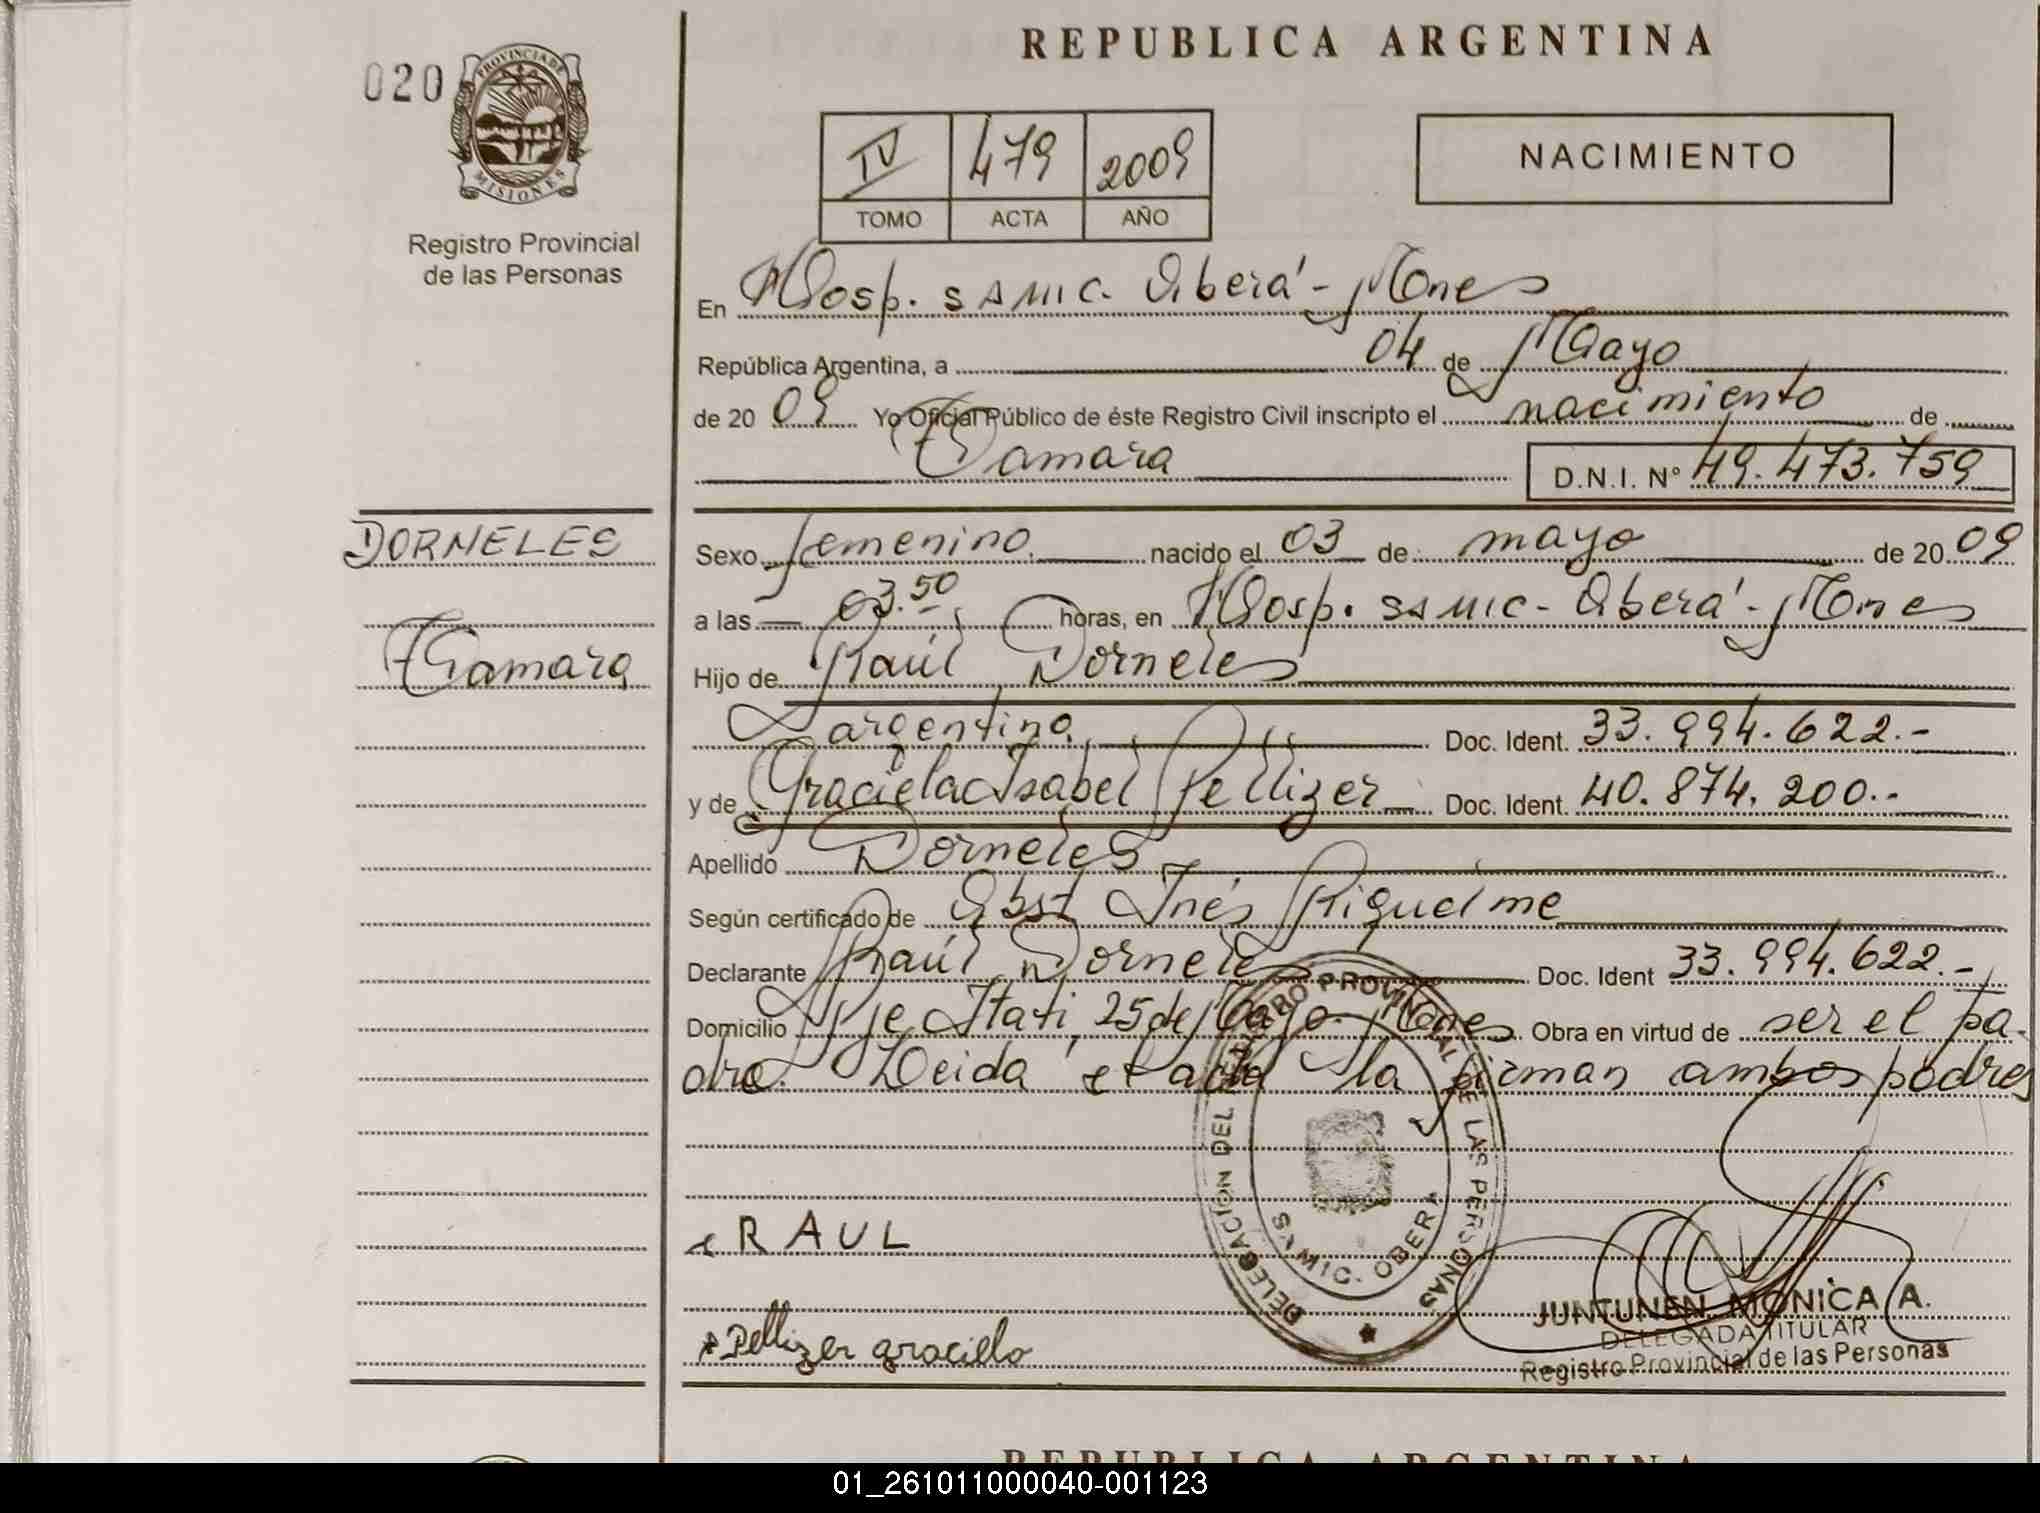 REPUBLICA ARGENTINA
020
PROVINCIA DE
MISIONES
Registro Provincial
de las Personas
IV 479 2009
TOMO ACTA AÑO
NACIMIENTO
En Hosp. SAMIC. Oberá - Mnes
República Argentina, a 04 de Mayo
de 20 09 Yo Oficial Público de éste Registro Civil inscripto el nacimiento de
Tamara D.N.I. Nº 49.473.759
DORNELES
Tamara
Sexo femenino nacido el 03 de mayo de 20 09
a las 03.50 horas, en Hosp. SAMIC - Oberá - Mnes
Hijo de Raúl Dorneles
argentino Doc. Ident. 33.994.622.-
y de Graciela Isabel Pellizer Doc. Ident. 40.874.200.-
Apellido Dorneles
Según certificado de Obst Inés Riquelme
Declarante Raúl Dorneles Doc. Ident 33.994.622.-
Domicilio Pje Itati, 25 de Mayo. Mnes. Obra en virtud de ser el pa-
dre. Leida el acta la firman ambos padres
DELEGACION DEL REGISTRO PROVINCIAL DE LAS PERSONAS
SAMIC. OBERA
RAUL
Pellizer graciela
JUNTUNEN MONICA A.
DELEGADA TITULAR
Registro Provincial de las Personas
REPUBLICA ARGENTINA
01_261011000040-001123